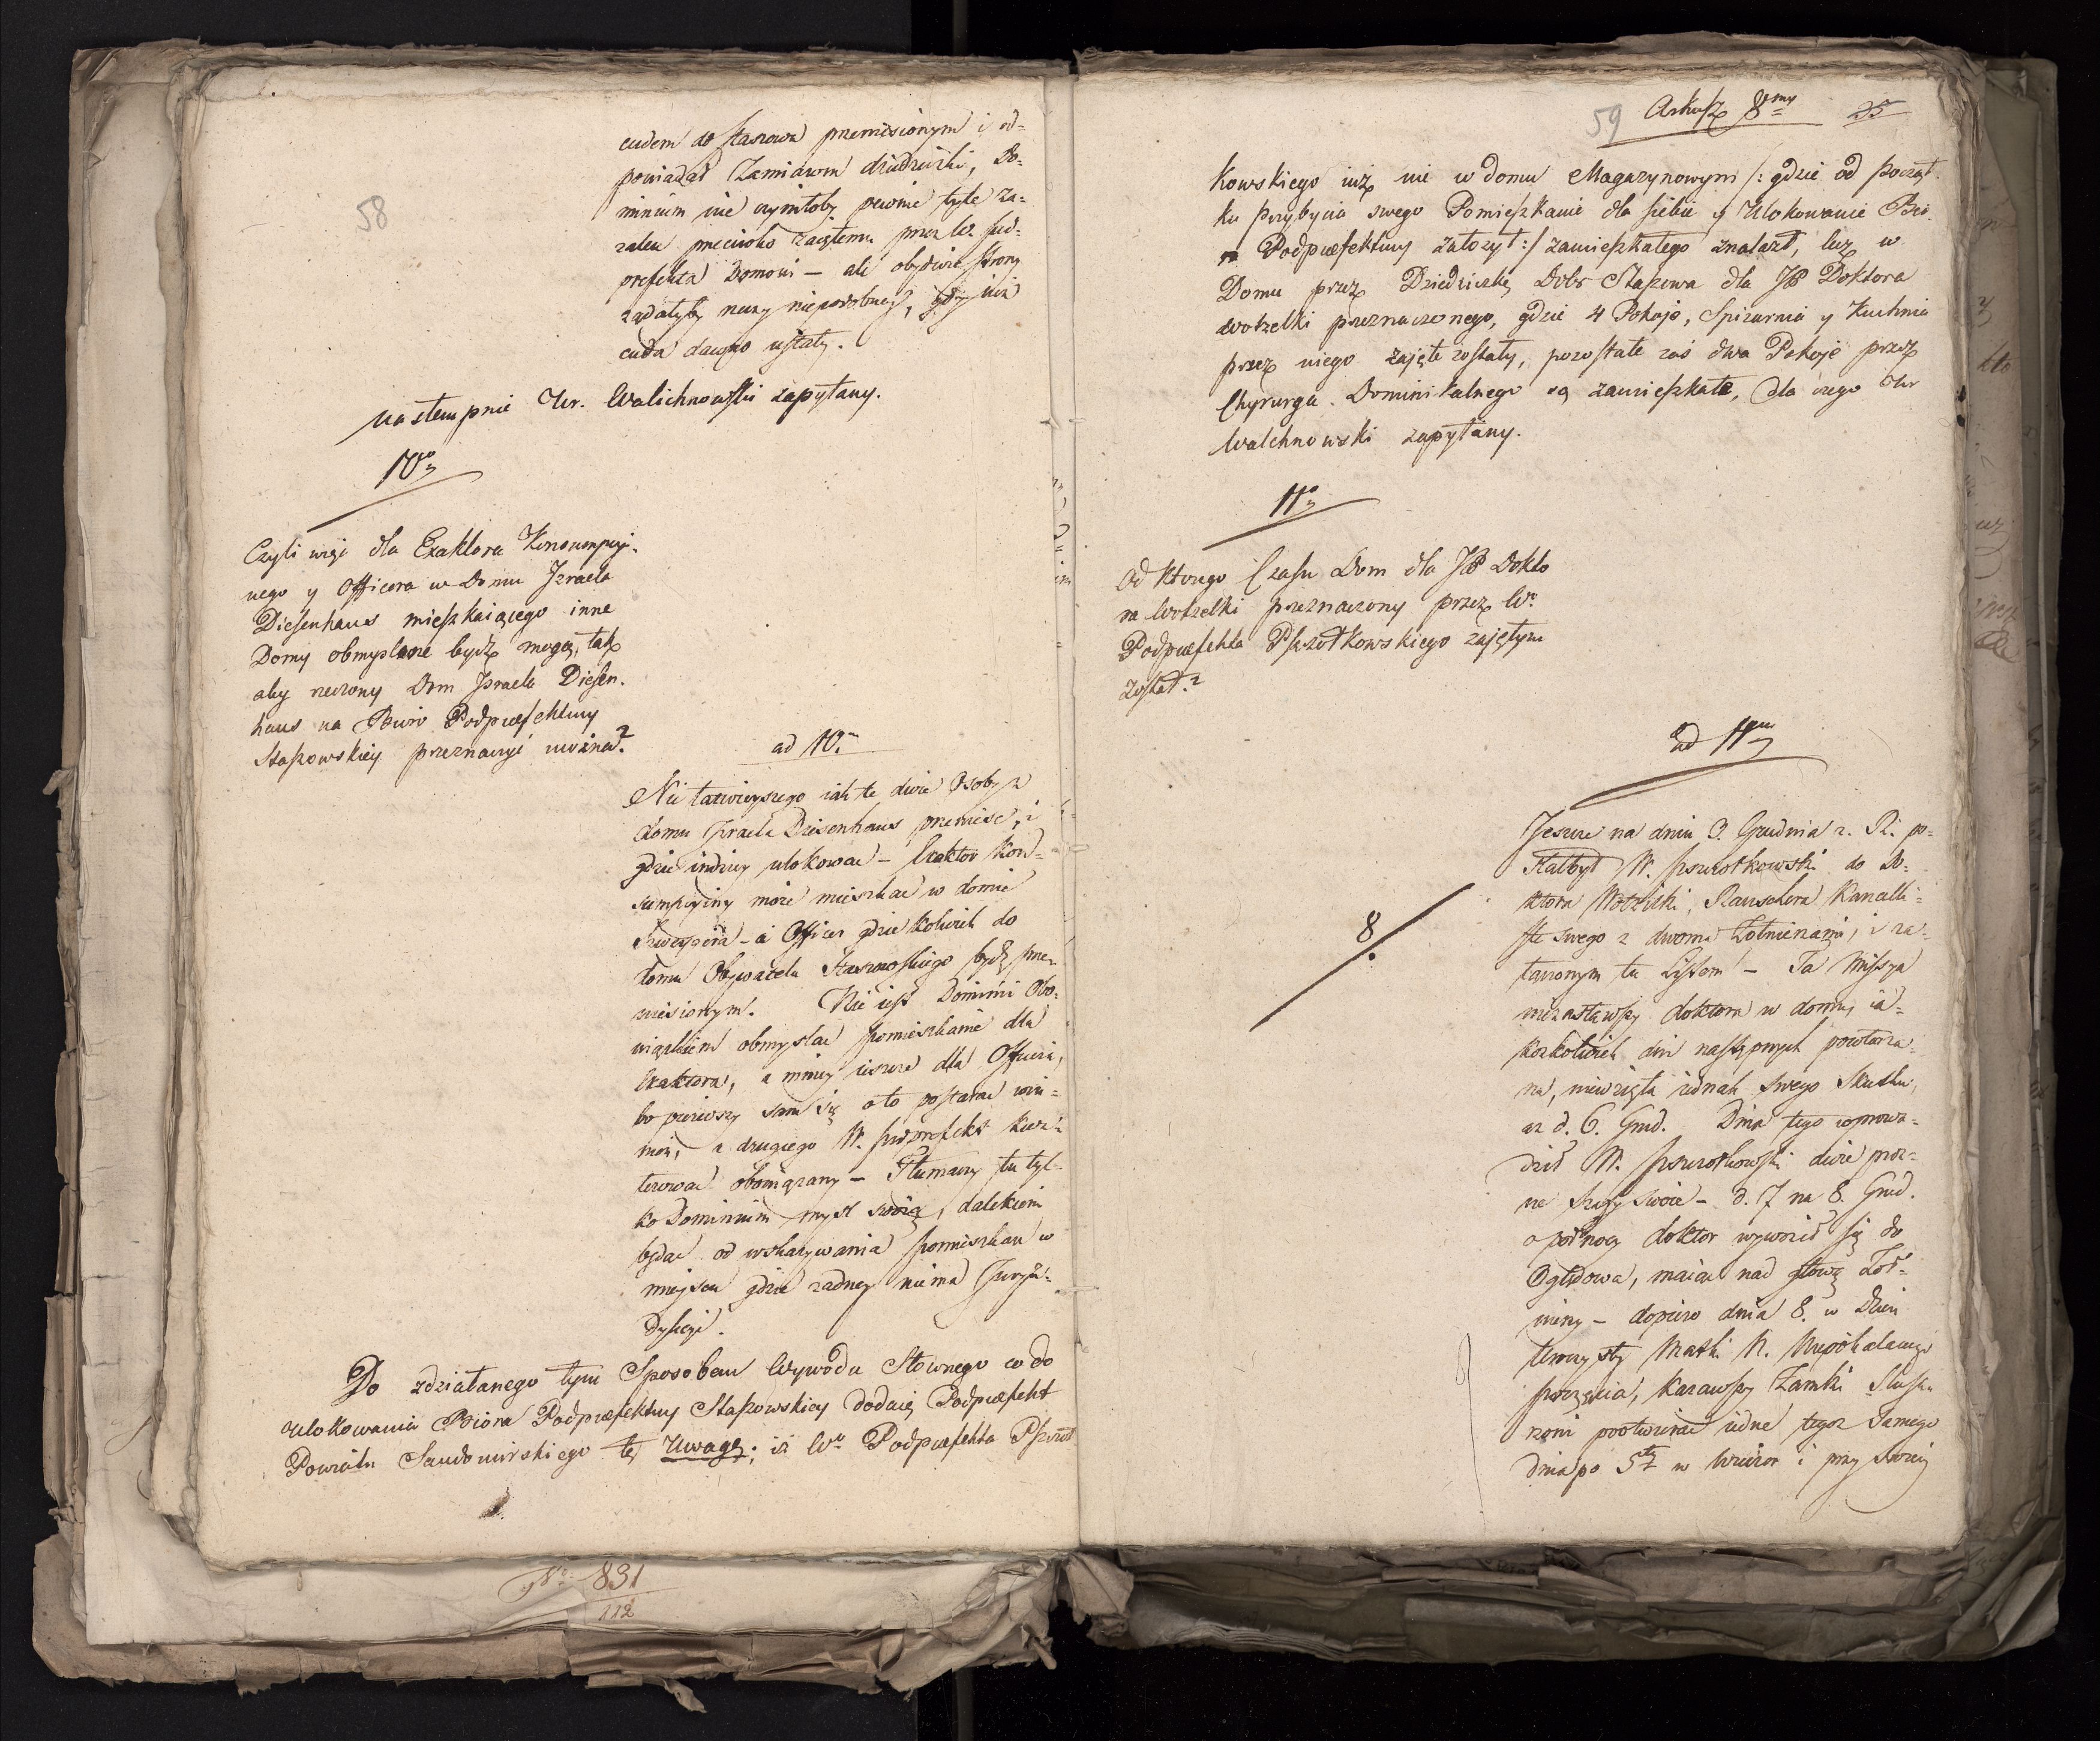 58
cudem do Staszowa przeniesionym i od=
powiadał Zamiarom dziedziczki, Do=
minium nie czyniłoby pewnie tyle za=
rzalen przeciwko zaiętemu przez W. Pod=
prefekta Domowi — ale obydwie strony
żądałyby rzeczy niepodobney, gdy iuż
cuda dawno ustały.
nastempnie Ur. Walichnowski zapytany.
10o
Czyli więc dla Exaktora Konsumpcyi-
nego y Officera w Domu Izraela
Diesenhaus mieszkaiącego inne
Domy obmyslone bydź mogą, tak
aby rzeczony Dom Izraela Diesen-
haus na Biuro Podprefektury
Staszowskiey przeznaczyć można?
ad 10m
Nic łatwieyszego iak te dwie Osoby z
domu Izraela Diesenhaus przenieść, i
gdzie indziey ulokować — Exaktor kon=
sumpcyiny może mieszkać w domie
Szwaycera — a Officer gdzie kolwiek do
domu Obywatela Staszowskiego bydź prze=
niesionym. Nie iest Dominii Obo=
wiązkiem obmyslać pomieszkanie dla
Exaktora, a mniey ieszcze dla Officera,
bo pierwszy sam się o to postarać wini=
nien, a drugiego W. Podprefekt kwa=
terować obowiązany — Tłumaczy tu tyl=
ko Dominium mysl swoią, dalekiem
będąc od wskazywania pomieszkań w
mieyscu gdzie żadney nie ma Juryz=
dykcyi.
Do zdziałanego tym Sposobem Wywodu Słownego co do
Ulokowania Bióra Podprefektury Staszowskiey dodaię Podprefekt
Powiatu Sandomirskiego tę Uwagę; iż Wo Podprefekta Pszczoł
No 831
112
59 Arkusz 8my 25
kowskiego iuż nie w domu Magazynowym /: gdzie od począt-
ku przybycia swego Pomieszkanie dla siebie y Ulokowanie Biu-
ra Podprefektury założył :/ zamieszkałego znalazł, lecz w
Domu przez Dziedziczkę Dóbr Staszowa dla JP Doktora
Wotzelki przeznaczonego, gdzie 4 Pokoje, Spizarnia y Kuchnia
przez niego zajęte zostały, pozostałe zaś dwa Pokoje przez
Chyrurga Dominikalnego są zamieszkałe, dla czego Ur
Walchnowski zapytany.
11o
Od ktorego Czasu Dom dla JP Dokto
ra Wotzelki przeznaczony przez Wo
Podprefekta Pszczołkowskiego zajętym
został?
ad 11um
8.
Jeszcze na dniu 3. Grudnia r. R. p=
W. Pszczołkowski do Do=
ktora Wotzelki, Rauschera Kancelli=
stę swego z dwoma Żołnierzami, i za=
łączonym tu Listem — Ta Missya
niezastawszy doktora w domu, ia=
kożkolwiek dni następnych powtarza=
na, niewzięła iednak swego skutku,
aż d. 6. Grud. Dnia tego wprowa=
dził W. Pszczołkowski dwie proz=
ne Szafy swoie — d. 7 na 8. Grud.
o pół nocy doktor wywoził się do
Oględowa, maiąc nad głową Żoł=
nierzy — dopiero dnia 8. w dzień
uroczysty Matki N. Niepokalanego
poczęcia, kazawszy Zamki Slusa=
rzowi pootwierać iedne tegoż samego
dnia po 5tey w wieczor i przy swiecy